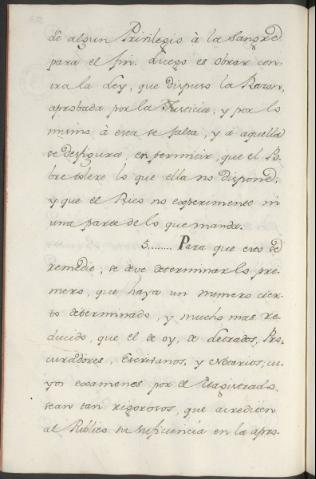 de algun Privilegio à la Sangre
para el fin. Luego es obrar con-
tra la Ley, que dispuso la Razon,
aprobada por la Justicia, y por lo
mismo à esta se falta, y á aquella
se desfigura, en permitir, que el Po-
bre tolere lo que ella no dispone,
y que el Rico no experimente ni
una parte de lo que manda.
5........ Para que esto se
remedie, se deve determinar lo pri-
mero, que haya un numero cier-
to determinado, y mucho mas re-
ducido, que el de oy, de Letrados, Pro-
curadores, Escrivanos, y Notarios; cu-
yos examenes por el Magistrado
sean tan rigorosos, que acrediten
al Publico su suficiencia en la